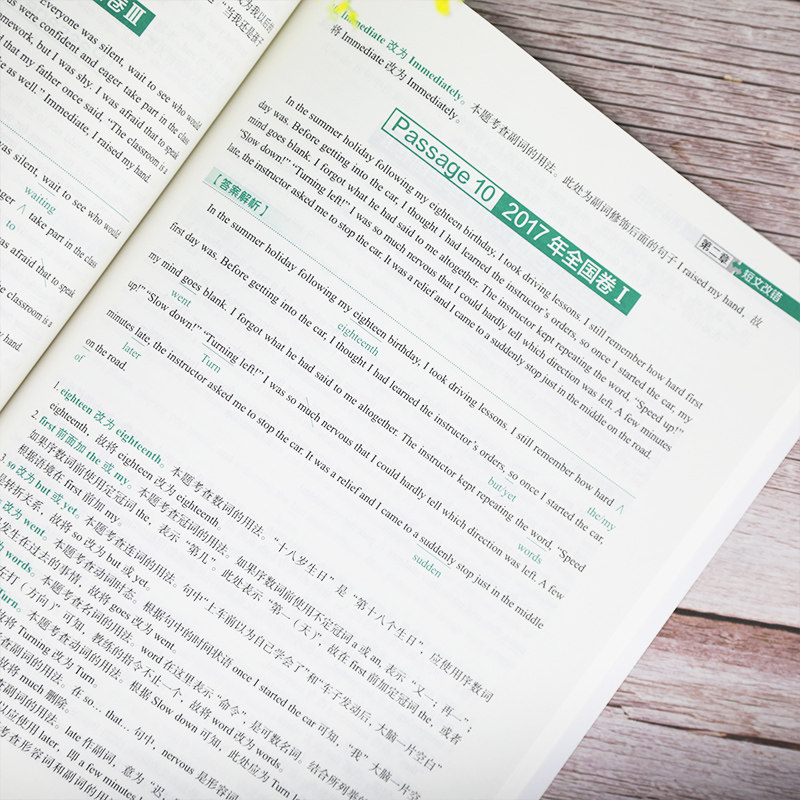 卷Ⅲ
everyone was silent, wait to see who
were confident and eager take part in the class
, but I was shy. I was afraid that to speak
that my father once said, “The classroom is a
as well.” Immediate, I raised my hand.
was silent, wait to see who would
waiting
take part in the class
to
was afraid that to speak
classroom is a
my hand.
第二章 短文改错
Immediate 改为 Immediately。本题考查副词的用法。此处为副词修饰后面的句子 I raised my hand，故
将 Immediate 改为 Immediately。
Passage 10 2017年全国卷Ⅰ
In the summer holiday following my eighteen birthday, I took driving lessons. I still remember how hard first
day was. Before getting into the car, I thought I had learned the instructor’s orders, so once I started the car, my
mind goes blank. I forgot what he had said to me altogether. The instructor kept repeating the word, “Speed up!”
“Slow down!” “Turning left!” I was so much nervous that I could hardly tell which direction was left. A few minutes
late, the instructor asked me to stop the car. It was a relief and I came to a suddenly stop just in the middle on the road.
【答案解析】
In the summer holiday following my eighteen birthday, I took driving lessons. I still remember how hard ∧
eighteenth the/my
first day was. Before getting into the car, I thought I had learned the instructor’s orders, so once I started the car,
but/yet
my mind goes blank. I forgot what he had said to me altogether. The instructor kept repeating the word, “Speed
went words
up!” “Slow down!” “Turning left!” I was so much nervous that I could hardly tell which direction was left. A few
Turn
minutes late, the instructor asked me to stop the car. It was a relief and I came to a suddenly stop just in the middle
later sudden
on the road.
of
1. eighteen 改为 eighteenth。本题考查数词的用法。“十八岁生日”是“第十八个生日”，应使用序数词
eighteenth，故将 eighteen 改为 eighteenth。
2. first 前面加 the 或 my。本题考查冠词的用法。如果序数词前使用不定冠词 a 或 an，表示“又一；再一”；
如果序数词前使用定冠词 the，表示“第几”。此处表示“第一（天）”，故在 first 前加定冠词 the，或者
根据语境在 first 前加 my。
3. so 改为 but 或 yet。本题考查连词的用法。句中“上车前以为自己学会了”和“车子发动后，大脑一片空白”
是转折关系，故将 so 改为 but 或 yet。
改为 went。本题考查动词时态。根据句中的时间状语 once I started the car 可知，“我”大脑一片空
发生在过去的事情，故将 goes 改为 went。
words。本题考查名词的用法。word 在这里表示“命令”，是可数名词。结合所列举的
（方向）”可知，教练的指令不止一个，故将 word 改为 words。
Turn。本题考查动词的用法。根据 Slow down 可知，此处应为 Turn
故将 Turning 改为 Turn。
副词的用法。在 so… that… 句中，nervous 是形容词
故将 much 删除。
查副词的用法。late 作副词，意为“迟，
应使用 later，即 a few minutes l
考查形容词和副词的用